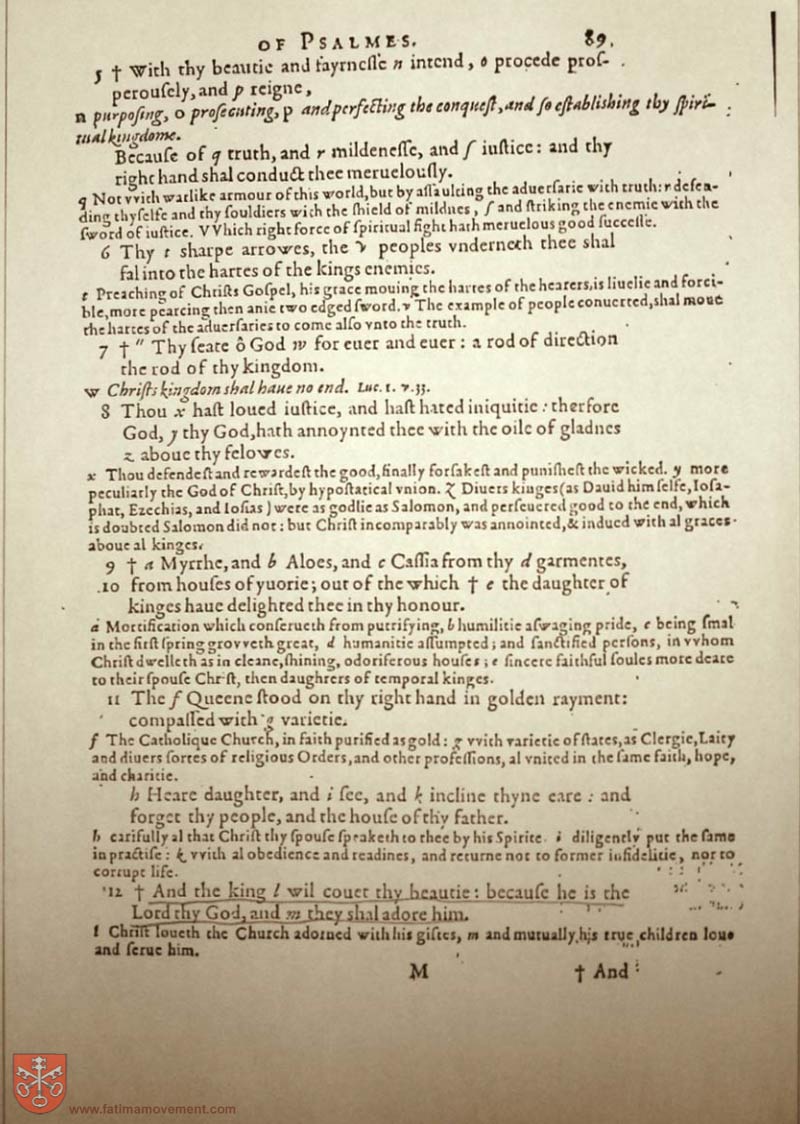 OF PSALMES. 89.
5 † With thy beautie and fayrneſſe n intend, o procede proſ-
perouſely, and p reigne,
n purpoſing, o proſecuting, p and perfecting the conqueſt, and ſo eſtabliſhing thy ſpiri-
tual kingdome.
Becauſe of q truth, and r mildeneſſe, and ſ iuſtice: and thy
right hand shal conduct thee meruelouſly.
q Not vvith warlike armour of this world, but by aſſaulting the aduerſarie with truth: r defen-
ding thyſelfe and thy ſouldiers with the ſhield of mildnes, ſ and ſtriking the enemie with the
ſword of iuſtice. VVhich right force of ſpiritual fight hath meruelous good ſucceſſe.
6 Thy t sharpe arrowes, the v peoples vnderneth thee shal
fal into the hartes of the kings enemies.
t Preaching of Chriſts Goſpel, his grace mouing the hartes of the hearers, is liuelie and forci-
ble, more pearcing then anie two edged ſword. v The example of people conuerted, shal moue
the hartes of the aduerſaries to come alſo vnto the truth.
7 † " Thy ſeate ô God w for euer and euer: a rod of direction
the rod of thy kingdom.
w Chriſts kingdom shal haue no end. Luc. 1. v. 33.
8 Thou x haſt loued iuſtice, and haſt hated iniquitie: therfore
God, y thy God, hath annoynted thee with the oile of gladnes
z aboue thy felowes.
x Thou defendeſt and rewardeſt the good, finally forſakeſt and puniſheſt the wicked. y more
peculiarly the God of Chriſt, by hypoſtatical vnion. z Diuers kinges (as Dauid him ſelfe, Ioſa-
phat, Ezechias, and Ioſias) were as godlie as Salomon, and perſeuered good to the end, which
is doubted Salomon did not: but Chriſt incomparably was annointed, & indued with al graces
aboue al kinges.
9 † a Myrrhe, and b Aloes, and c Caſſia from thy d garmentes,
10 from houſes of yuorie; out of the which † e the daughter of
kinges haue delighted thee in thy honour.
a Mortification which conſerueth from putrifying, b humilitie aſwaging pride, c being ſmal
in the firſt ſpring grovveth great, d humanitie aſſumpted; and ſanctified perſons, in vvhom
Chriſt dwelleth as in cleane, ſhining, odoriferous houſes; e ſincere faithful ſoules more deare
to their ſpouſe Chriſt, then daughters of temporal kinges.
11 The f Queene ſtood on thy right hand in golden rayment:
compaſſed with g varietie.
f The Catholique Church, in faith purified as gold: g vvith varietie of ſtates, as Clergie, Laity
and diuers ſortes of religious Orders, and other profeſſions, al vnited in the ſame faith, hope,
and charitie.
h Heare daughter, and i ſee, and k incline thyne eare: and
forget thy people, and the houſe of thy father.
h carifully al that Chriſt thy ſpouſe ſpeaketh to thee by his Spirite. i diligently put the ſame
in practiſe: k vvith al obedience and readines, and returne not to former infidelitie, nor to
corrupt life.
12 † And the king l wil couet thy beautie: becauſe he is the
Lord thy God, and m they shal adore him.
l Chriſt loueth the Church adorned with his giftes, m and mutually, his true children loue
and ſerue him.
M † And
www.fatimamovement.com